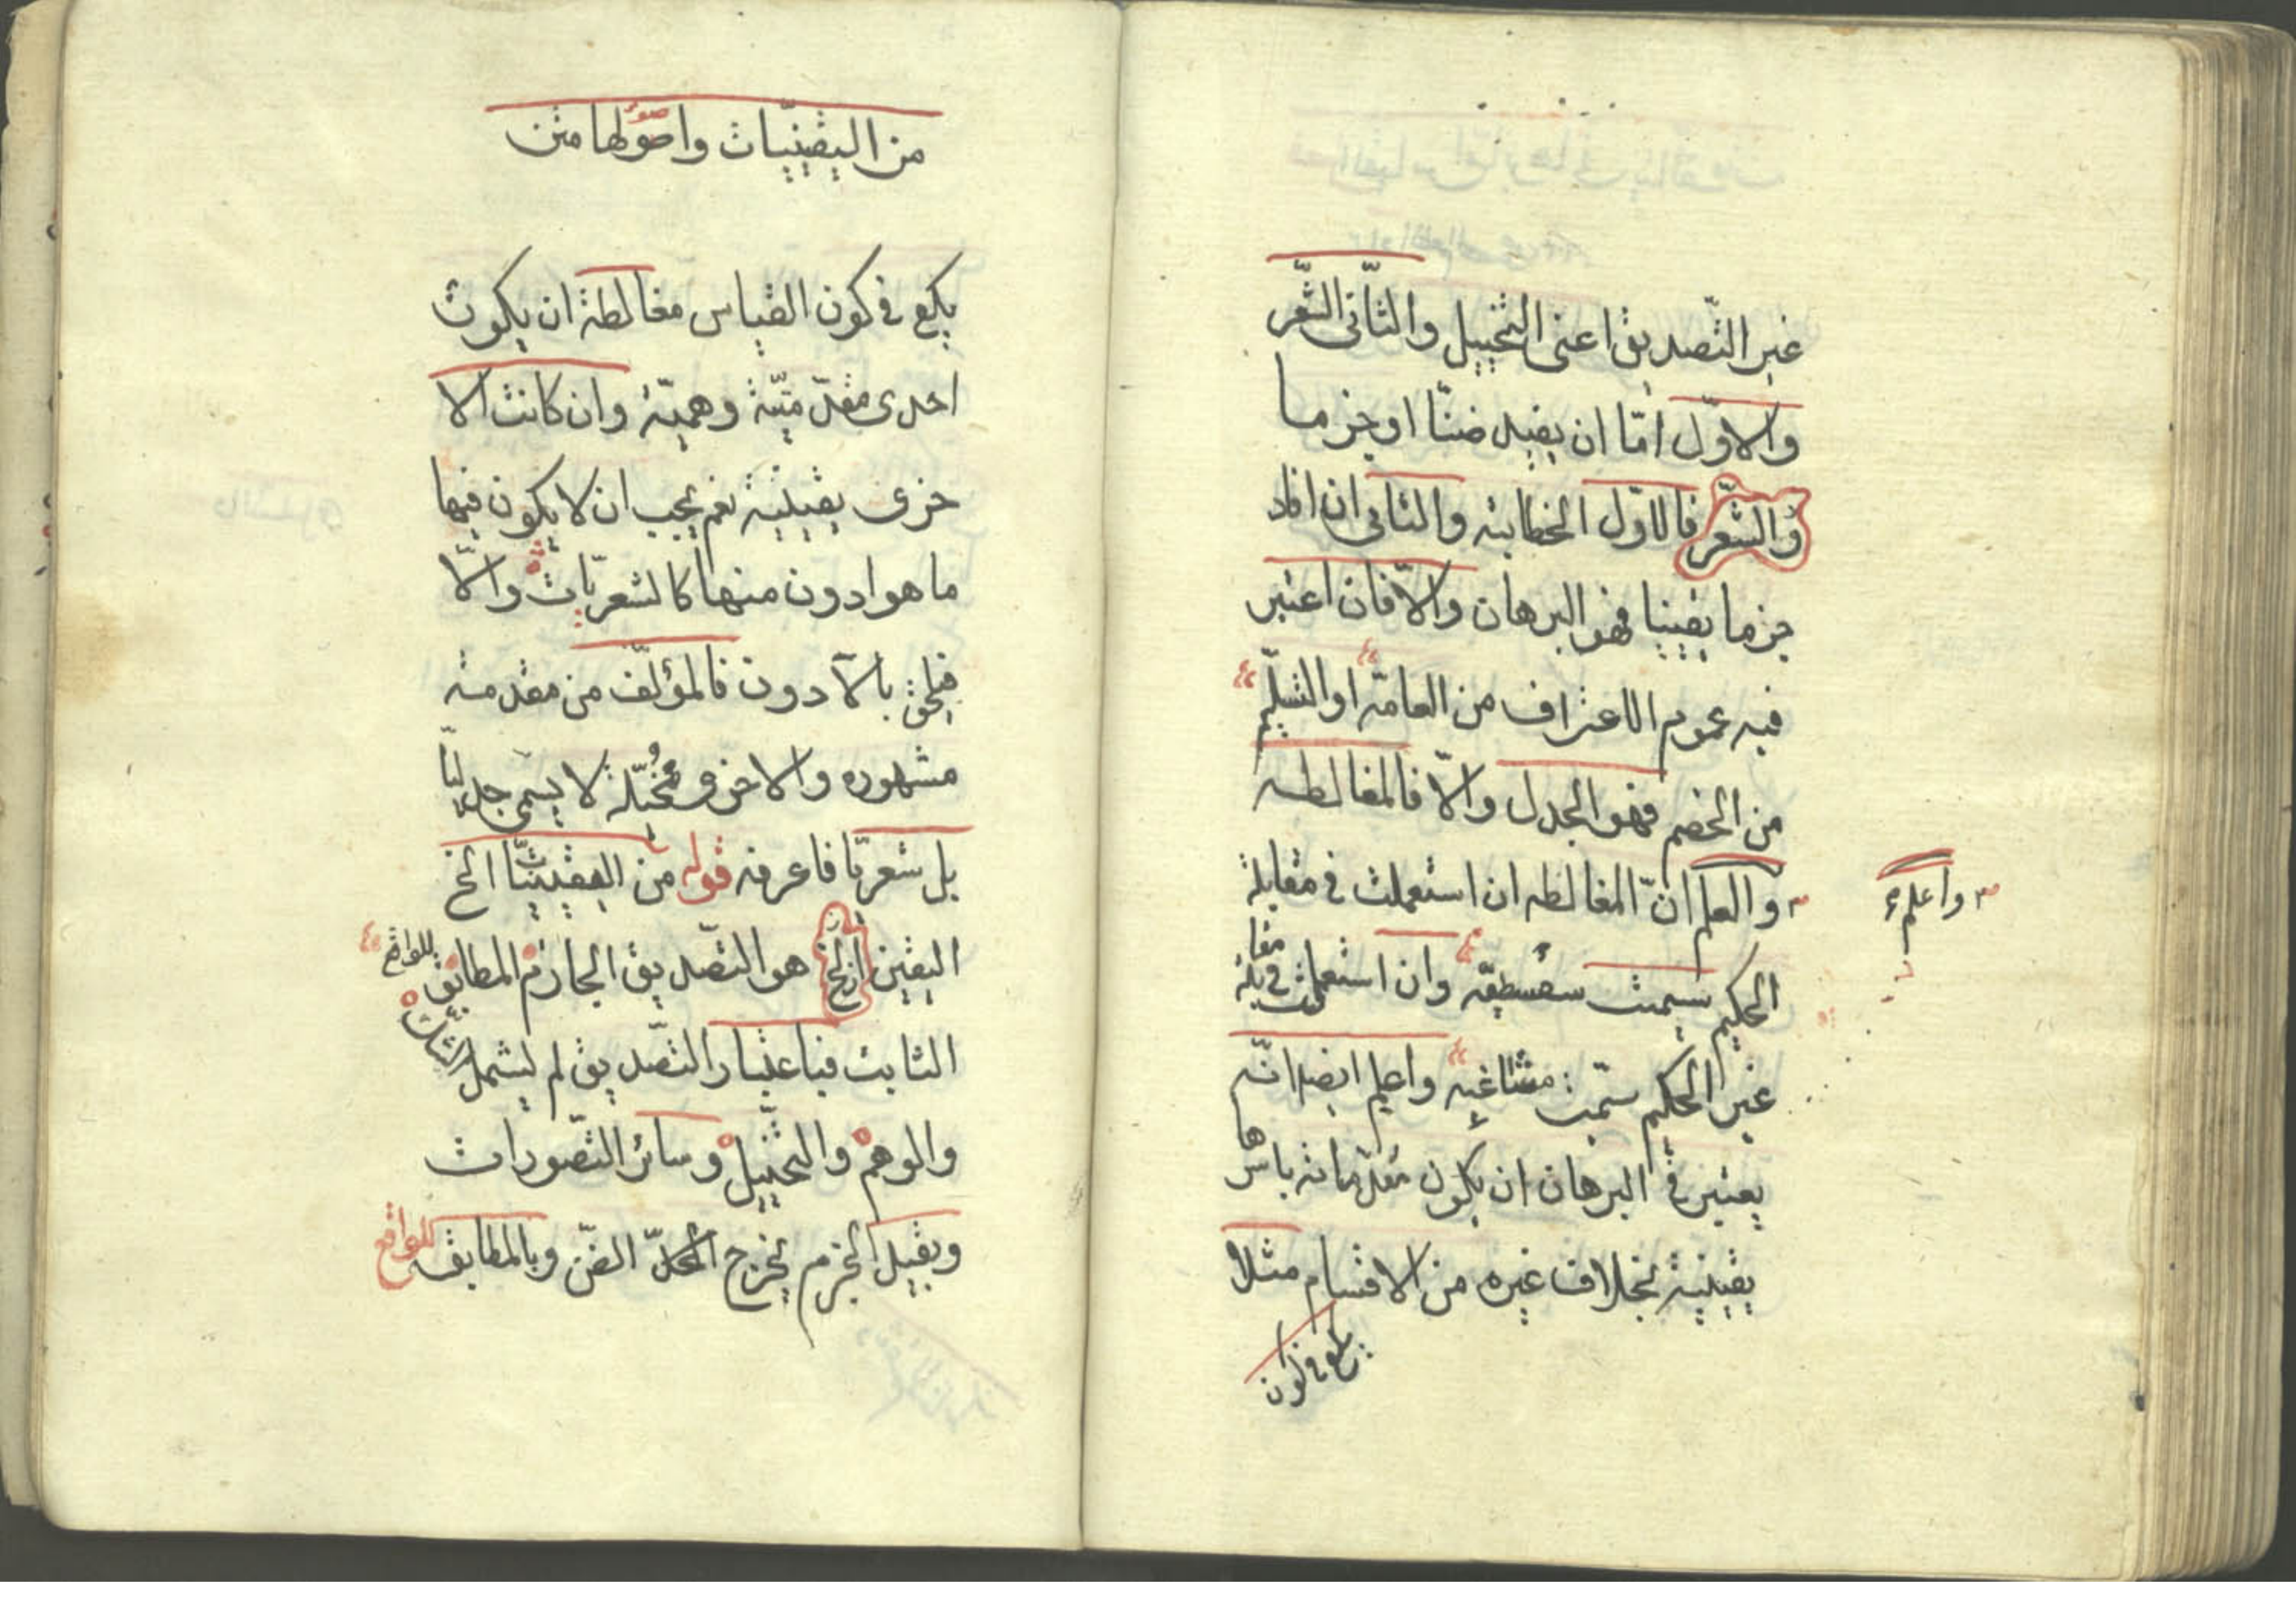 غير التّصديق اعنى التخييل والثّانى الشّعر
والاوّل امّا ان يفيد ضنّا اوجزما
والشّعر فالاوّل الخطابة والثانى ان افاد
جزما يقينيا فهو البرهان والّا فان اعتبر
فيه عموم الاعتراف من العامّه او التسليم
من الخصم فهو الجدل والّا فالمغالطه
والعلم انّ المغالطه ان استعملت فى مقابلة
واعلم
الحكيم سيمت سفسطيّه وان استعملت فى مقابلة
غير الحكيم سمّيت مشاغبه واعلم ايضا انّه
يعتبر فى البرهان ان يكون مقدّماته باسرها
يقينية بخلاف غيره من الاقسام مثلا
يكع فى كون
من اليقينيّات واصولها متن
يكع فى كون القياس مغالطة ان يكون
احدى مقدّميّة وهميّة وان كانت الا
خرى يقينية نعم يجب ان لا يكون فيها
ما هو ادون منها كالشعريّات والّا
فيلحق بالادون فالمؤلّف من مقدمته
مشهوره والاخرى مُخيّلة لا يسمى جدليّا
بل شعريّا فاعرفه قوله من اليقينيّات الخ
اليقين الخ هو التصّديق الجازم المطابق للواقع
الثابت فباعتبار التصّديق لم يشمل الشّك
والوهم والتخييل وسائر التصّورات
وبقيد الجزم يخرج الضّن وبالمطابقه للواقع